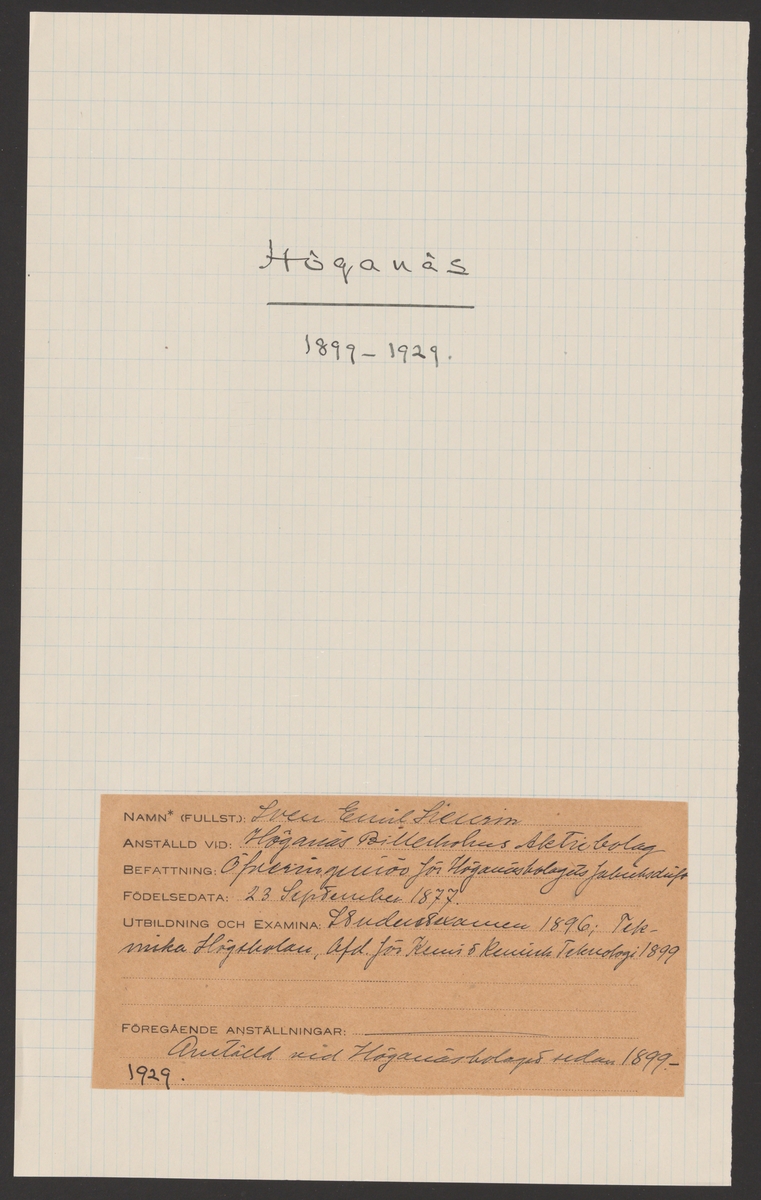 Höganäs
1899 – 1929.
NAMN* (FULLST.): Sven Emil Sieurin
ANSTÄLLD VID: Höganäs Billesholms Aktiebolag
BEFATTNING: Öfveringeniör för Höganäsbolagets fabriksdrift
FÖDELSEDATA: 23 September 1877.
UTBILDNING OCH EXAMINA: Studentexamen 1896; Tek-
niska Högskolan, Afd. för Kemi & Kemisk Teknologi 1899
FÖREGÅENDE ANSTÄLLNINGAR:
Anställd vid Höganäsbolaget sedan 1899–
1929.